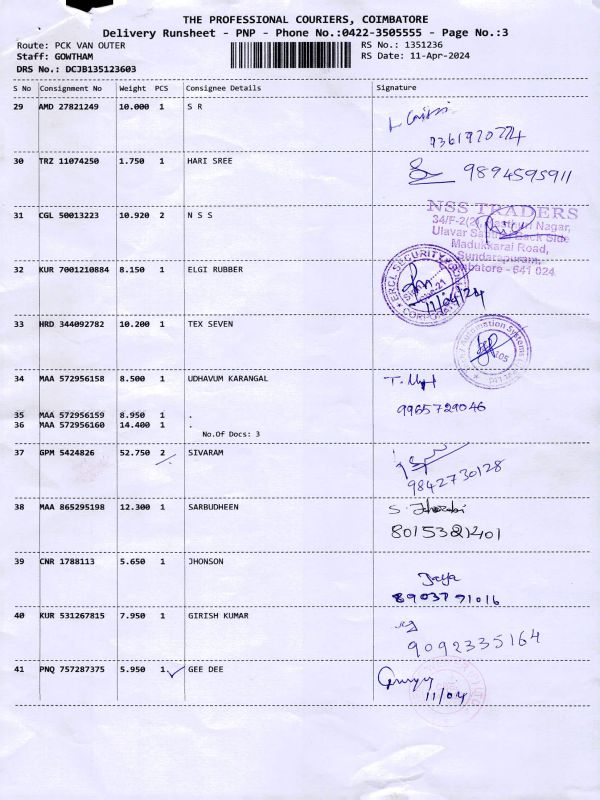 THE PROFESSIONAL COURIERS, COIMBATORE
Delivery Runsheet - PNP - Phone No.:0422-3505555 - Page No.:3
Route: PCK VAN OUTER RS No.: 1351236
Staff: GOWTHAM RS Date: 11-Apr-2024
DRS No.: DCJB135123603
S No Consignment No Weight PCS Consignee Details Signature
29 AMD 27821249 10.000 1 S R
30 TRZ 11074250 1.750 1 HARI SREE
9894595911
31 CGL 50013223 10.920 2 N S S
NSS TRADERS
34/F-2(2), Nagar,
Ulavar Back Side
Madukkarai Road,
Sundarapuram,
Coimbatore - 641 024
32 KUR 7001210884 8.150 1 ELGI RUBBER
SECURITY
11/04/24
33 HRD 344092782 10.200 1 TEX SEVEN
Automation Systems
34 MAA 572956158 8.500 1 UDHAVUM KARANGAL
9965729046
35 MAA 572956159 8.950 1 .
36 MAA 572956160 14.400 1 .
No.Of Docs: 3
37 GPM 5424826 52.750 2 SIVARAM
9842730128
38 MAA 865295198 12.300 1 SARBUDHEEN
39 CNR 1788113 5.650 1 JHONSON
Jaya
8903791016
40 KUR 531267815 7.950 1 GIRISH KUMAR
9092335164
41 PNQ 757287375 5.950 1 GEE DEE
11/04